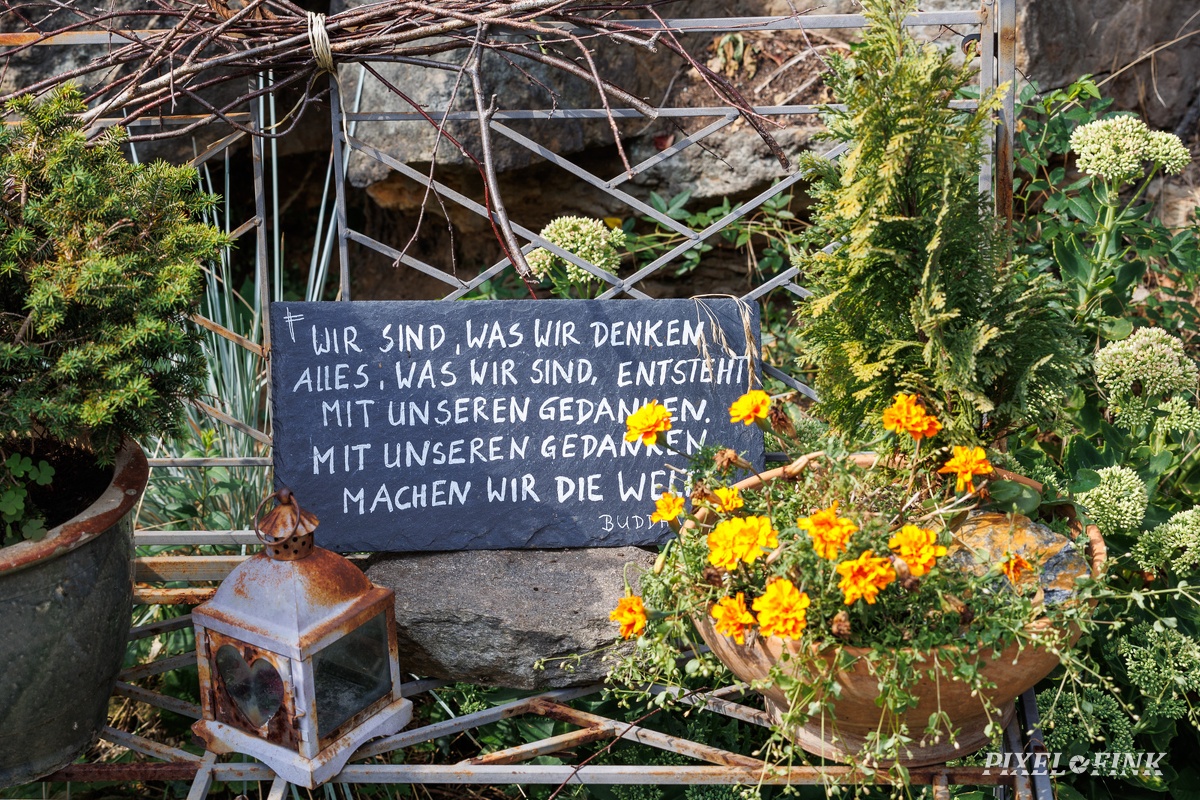 WIR SIND, WAS WIR DENKEN
ALLES, WAS WIR SIND, ENTSTEHT
MIT UNSEREN GEDANKEN.
MIT UNSEREN GEDANKEN
MACHEN WIR DIE WEL
BUDDA
PIXEL FINK